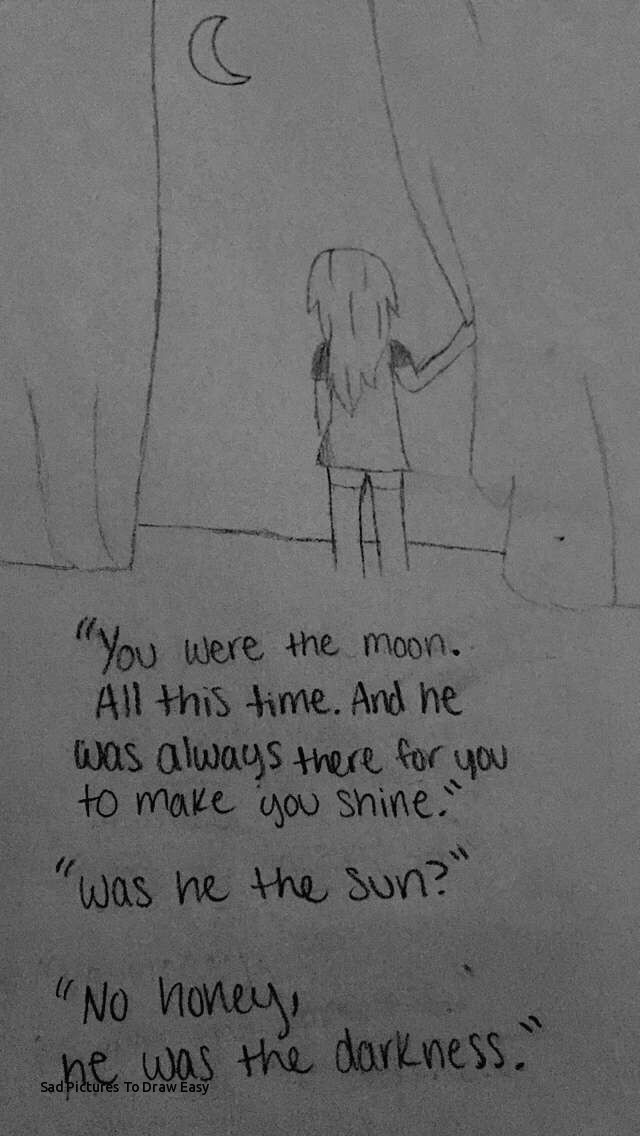 "You were the moon.
All this time. And he
was always there for you
to make you shine."
"was he the sun?"
"No honey,
he was the darkness."
Sad Pictures To Draw Easy